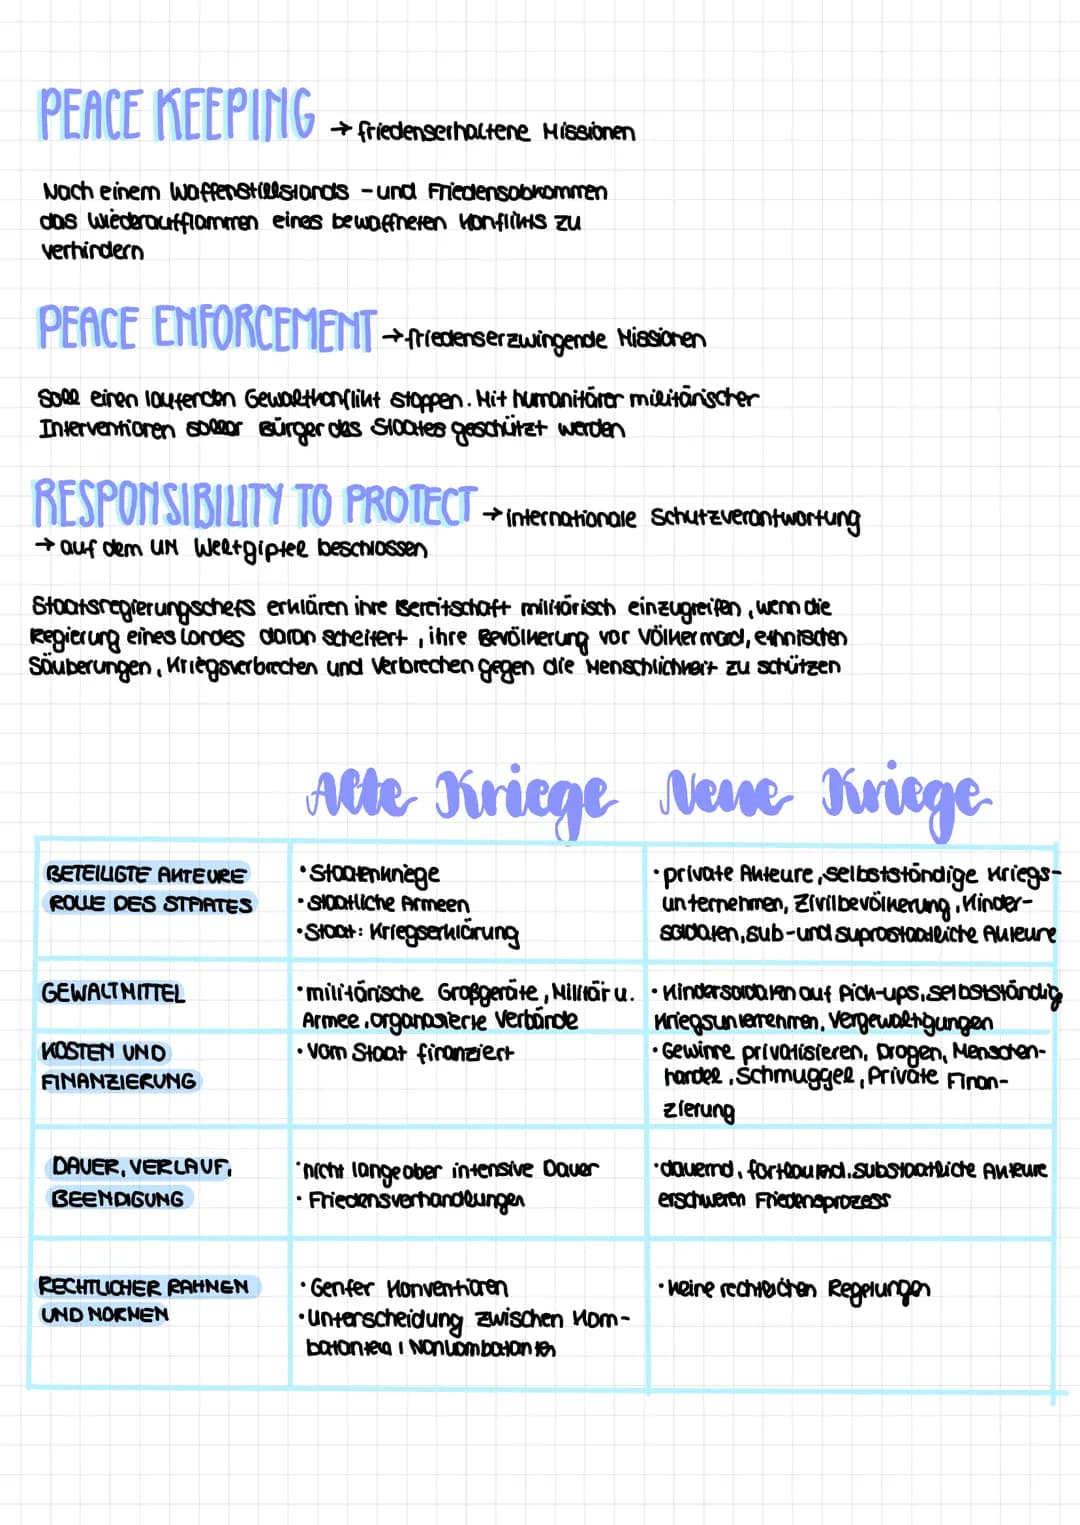 PEACE KEEPING → friedenserhaltene Missionen
Nach einem Waffenstillstands - und Friedensabkommen
das Wiederaufflammen eines bewaffneten Konflikts zu
verhindern
PEACE ENFORCEMENT → friedenserzwingende Missionen
Soll einen laufenden Gewaltkonflikt stoppen. Mit humanitärer militärischer
Interventionen sollen Bürger des Staates geschützt werden
RESPONSIBILITY TO PROTECT → internationale Schutzverantwortung
→ auf dem UN Weltgipfel beschlossen
Staatsregierungschefs erklären ihre Bereitschaft militärisch einzugreifen, wenn die
Regierung eines Landes daran scheitert, ihre Bevölkerung vor Völkermord, ethnischen
Säuberungen, Kriegsverbrechen und Verbrechen gegen die Menschlichkeit zu schützen
Alte Kriege Neue Kriege
BETEILIGTE AKTEURE
ROLLE DES STAATES
• Staatenkriege
• staatliche Armeen
• Staat: Kriegserklärung
• private Akteure, selbstständige Kriegs-
unternehmen, Zivilbevölkerung, Kinder-
soldaten, sub- und suprastaatliche Akteure
GEWALTMITTEL
• militärische Großgeräte, Militär u.
Armee, organisierte Verbände
• Kindersoldaten auf Pick-ups, selbstständig
Kriegsunternehmen, Vergewaltigungen
KOSTEN UND
FINANZIERUNG
• Vom Staat finanziert
• Gewinne privatisieren, Drogen, Menschen-
handel, Schmuggel, Private Finan-
zierung
DAUER, VERLAUF,
BEENDIGUNG
• nicht lange aber intensive Dauer
• Friedensverhandlungen
• dauernd, fortlaufend. substaatliche Akteure
erschweren Friedensprozess
RECHTLICHER RAHMEN
UND NORMEN
• Genfer Konventionen
• Unterscheidung zwischen Kom-
batanten / Nonkombatanten
• Keine rechtlichen Regelungen